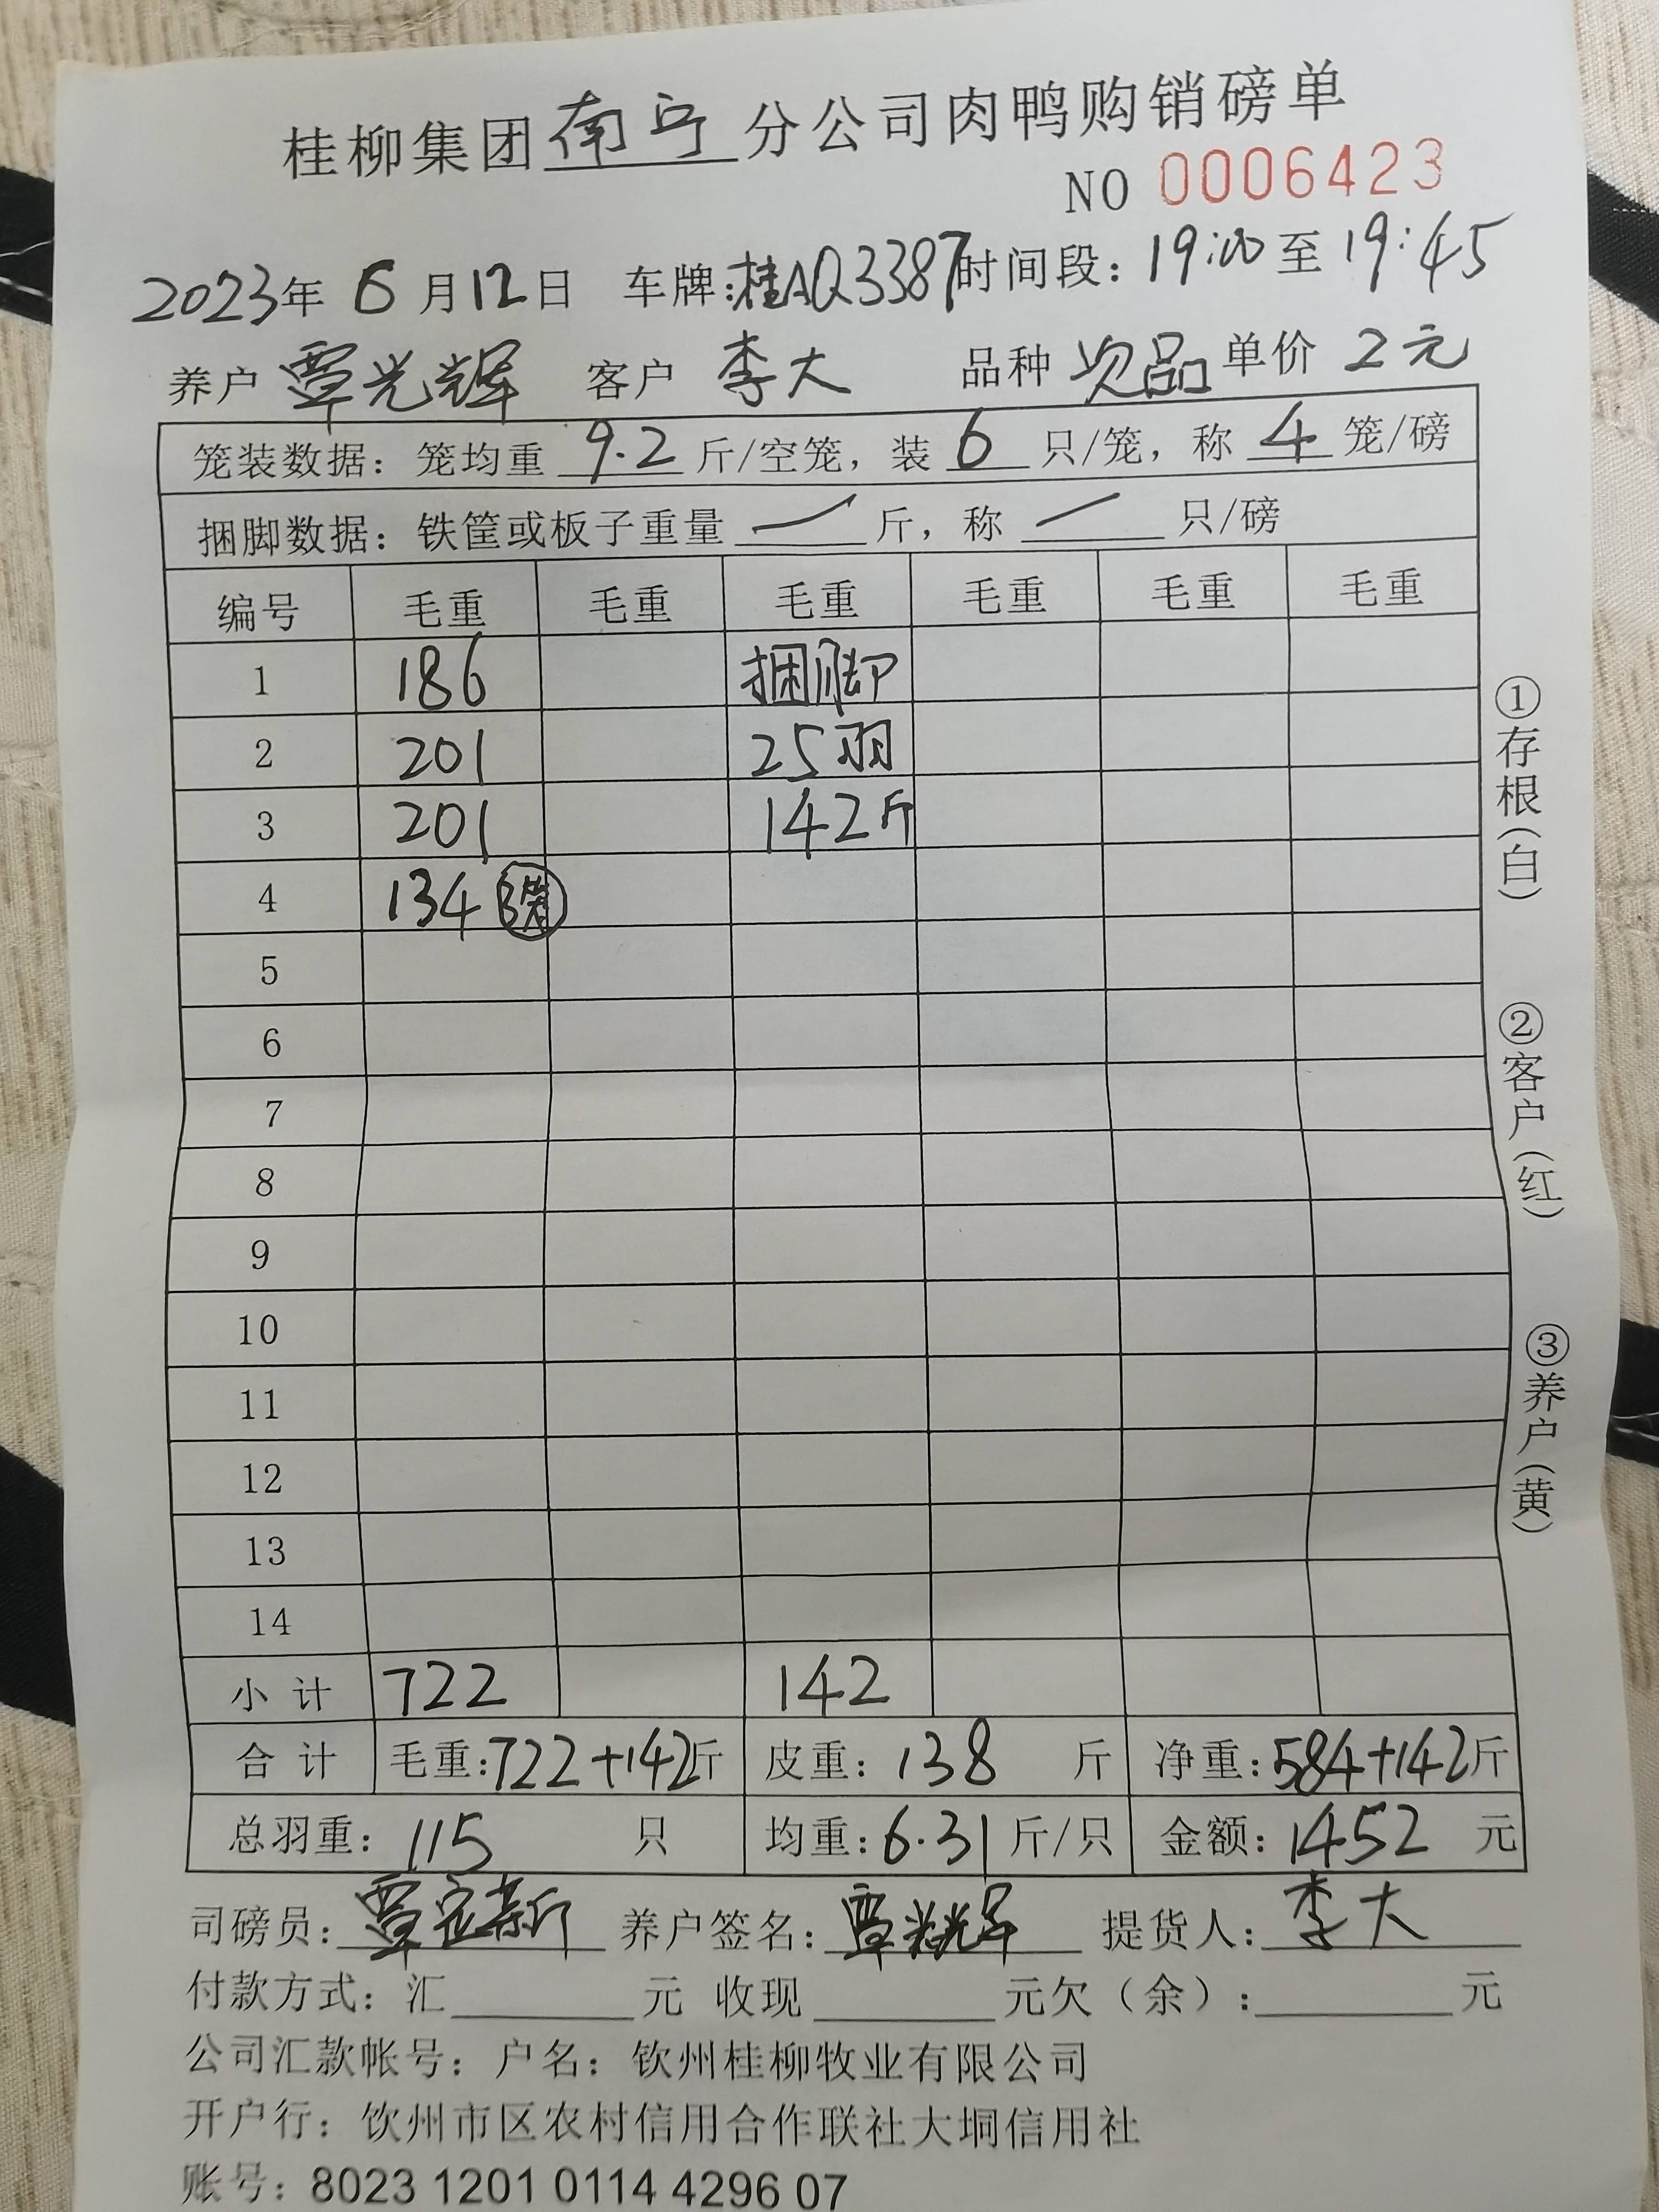 桂柳集团南宁分公司肉鸭购销磅单
NO 0006423
2023年 6月12日 车牌:桂AQ3387时间段:19:00至19:45
养户 覃光辉 客户 李大 品种 次品 单价 2元
笼装数据:笼均重 9.2 斤/空笼,装 6 只/笼,称 4 笼/磅
捆脚数据:铁筐或板子重量 / 斤,称 / 只/磅
编号 毛重 毛重 毛重 毛重 毛重 毛重
1 186 捆脚
2 201 25羽
3 201 142斤
4 134 3笼
5
6
7
8
9
10
11
12
13
14
小计 722 142
合计 毛重:722+142斤 皮重:138 斤 净重:584+142斤
总羽重:115 只 均重:6.31 斤/只 金额:1452 元
司磅员: 养户签名:覃光辉 提货人:李大
付款方式:汇 元 收现 元欠(余): 元
公司汇款帐号:户名:钦州桂柳牧业有限公司
开户行:钦州市区农村信用合作联社大垌信用社
账号:8023 1201 0114 4296 07
①存根(白)
②客户(红)
③养户(黄)